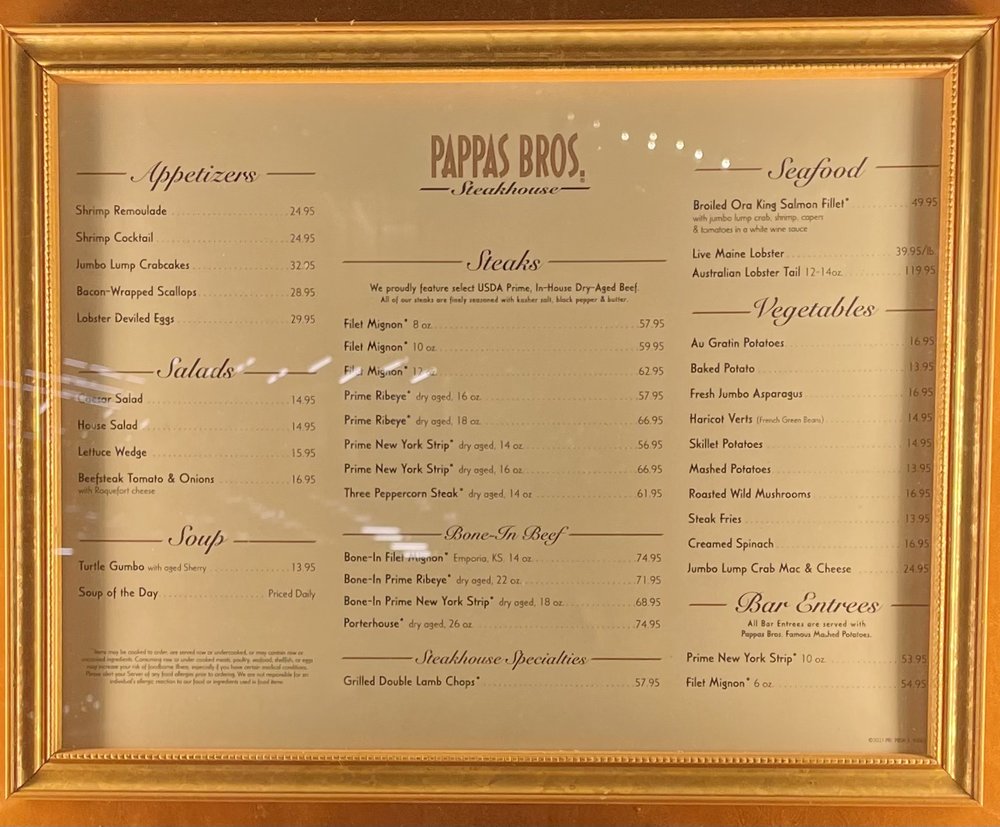 PAPPAS BROS.
Steakhouse
Appetizers
Shrimp Remoulade 24.95
Shrimp Cocktail 24.95
Jumbo Lump Crabcakes 32.95
Bacon-Wrapped Scallops 28.95
Lobster Deviled Eggs 29.95
Salads
Caesar Salad 14.95
House Salad 14.95
Lettuce Wedge 15.95
Beefsteak Tomato & Onions 16.95
with Roquefort cheese
Soup
Turtle Gumbo with aged Sherry 13.95
Soup of the Day Priced Daily
Items may be cooked to order, are served raw or undercooked, or may contain raw or
undercooked ingredients. Consuming raw or under cooked meats, poultry, seafood, shellfish, or eggs
may increase your risk of foodborne illness, especially if you have certain medical conditions.
Please alert your Server of any food allergies prior to ordering. We are not responsible for an
individual's allergic reaction to our food or ingredients used in food items.
Steaks
We proudly feature select USDA Prime, In-House Dry-Aged Beef.
All of our steaks are finely seasoned with kosher salt, black pepper & butter.
Filet Mignon* 8 oz. 57.95
Filet Mignon* 10 oz. 59.95
Filet Mignon* 12 oz. 62.95
Prime Ribeye* dry aged, 16 oz. 57.95
Prime Ribeye* dry aged, 18 oz. 66.95
Prime New York Strip* dry aged, 14 oz. 56.95
Prime New York Strip* dry aged, 16 oz. 66.95
Three Peppercorn Steak* dry aged, 14 oz. 61.95
Bone-In Beef
Bone-In Filet Mignon* Emporia, KS, 14 oz. 74.95
Bone-In Prime Ribeye* dry aged, 22 oz. 71.95
Bone-In Prime New York Strip* dry aged, 18 oz. 68.95
Porterhouse* dry aged, 26 oz. 74.95
Steakhouse Specialties
Grilled Double Lamb Chops* 57.95
Seafood
Broiled Ora King Salmon Fillet* 49.95
with jumbo lump crab, shrimp, capers
& tomatoes in a white wine sauce
Live Maine Lobster 39.95/lb
Australian Lobster Tail 12-14oz. 119.95
Vegetables
Au Gratin Potatoes 16.95
Baked Potato 13.95
Fresh Jumbo Asparagus 16.95
Haricot Verts (French Green Beans) 14.95
Skillet Potatoes 14.95
Mashed Potatoes 13.95
Roasted Wild Mushrooms 16.95
Steak Fries 13.95
Creamed Spinach 16.95
Jumbo Lump Crab Mac & Cheese 24.95
Bar Entrees
All Bar Entrees are served with
Pappas Bros. Famous Mashed Potatoes.
Prime New York Strip* 10 oz. 53.95
Filet Mignon* 6 oz. 54.95